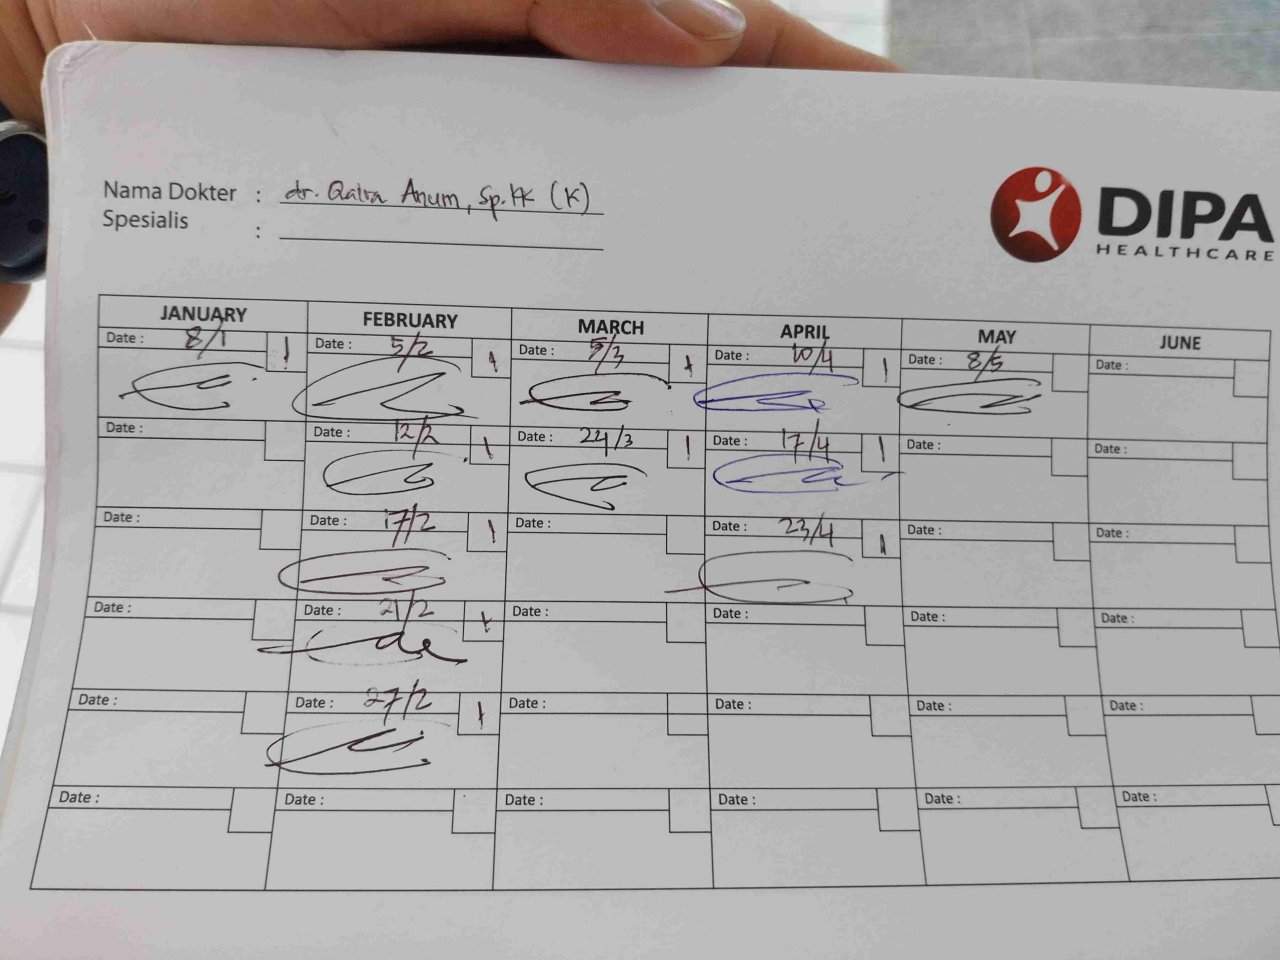 Nama Dokter : dr. Qaira Anum, Sp.KK (K)
Spesialis :
DIPA
HEALTHCARE
JANUARY FEBRUARY MARCH APRIL MAY JUNE
Date : 8/1 1 Date : 5/2 1 Date : 5/3 1 Date : 10/4 1 Date : 8/5 Date :
Date : Date : 12/2 1 Date : 24/3 1 Date : 17/4 1 Date : Date :
Date : Date : 17/2 1 Date : Date : 23/4 1 Date : Date :
Date : Date : 21/2 1 Date : Date : Date : Date :
Date : Date : 27/2 1 Date : Date : Date : Date :
Date : Date : Date : Date : Date : Date :